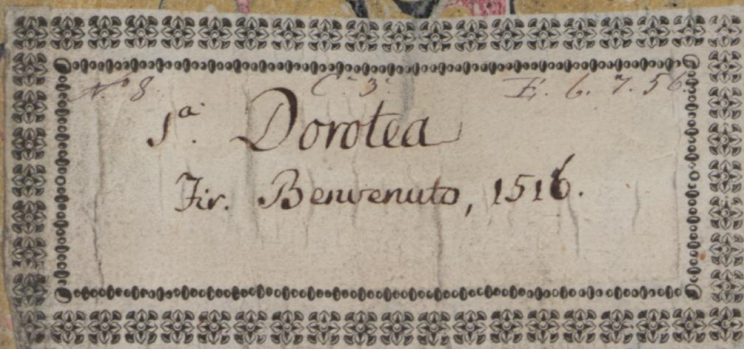 N.º 8. C. 3. E. 6. 7. 56
Sª. Dorotea
Fir. Benvenuto, 1516.